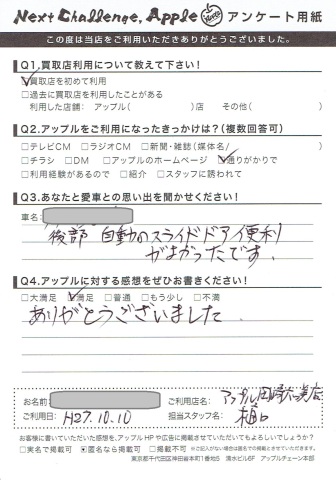 Next Challenge, Apple アンケート用紙
この度は当店をご利用いただきありがとうございました。
Q1.買取店利用について教えて下さい!
☑買取店を初めて利用
□過去に買取店を利用したことがある
利用した店舗: アップル( )店 その他( )
Q2.アップルをご利用になったきっかけは?(複数回答可)
□テレビCM □ラジオCM □新聞・雑誌(媒体名/ )
□チラシ □DM □アップルのホームページ ☑通りがかりで
□利用経験があるので □紹介 □スタッフに誘われて
Q3.あなたと愛車との思い出を聞かせください!
車名:
後部 自動のスライドドア便利
がよかったです.
Q4.アップルに対する感想をぜひお書きください!
□大満足 ☑満足 □普通 □もう少し □不満
ありがとうございました
お名前: ご利用店名: アップル岡崎
ご利用日: H27.10.10 担当スタッフ名: 植口
お客様に書いていただいた感想を、アップルHPや広告に掲載させていただいてもよろしいでしょうか?
□実名で掲載可 ■匿名なら掲載可 □掲載不可 ※ご記入がない場合は匿名での掲載とさせていただきます。
東京都千代田区神田省本町1番地5 清水ビル6F アップルチェーン本部